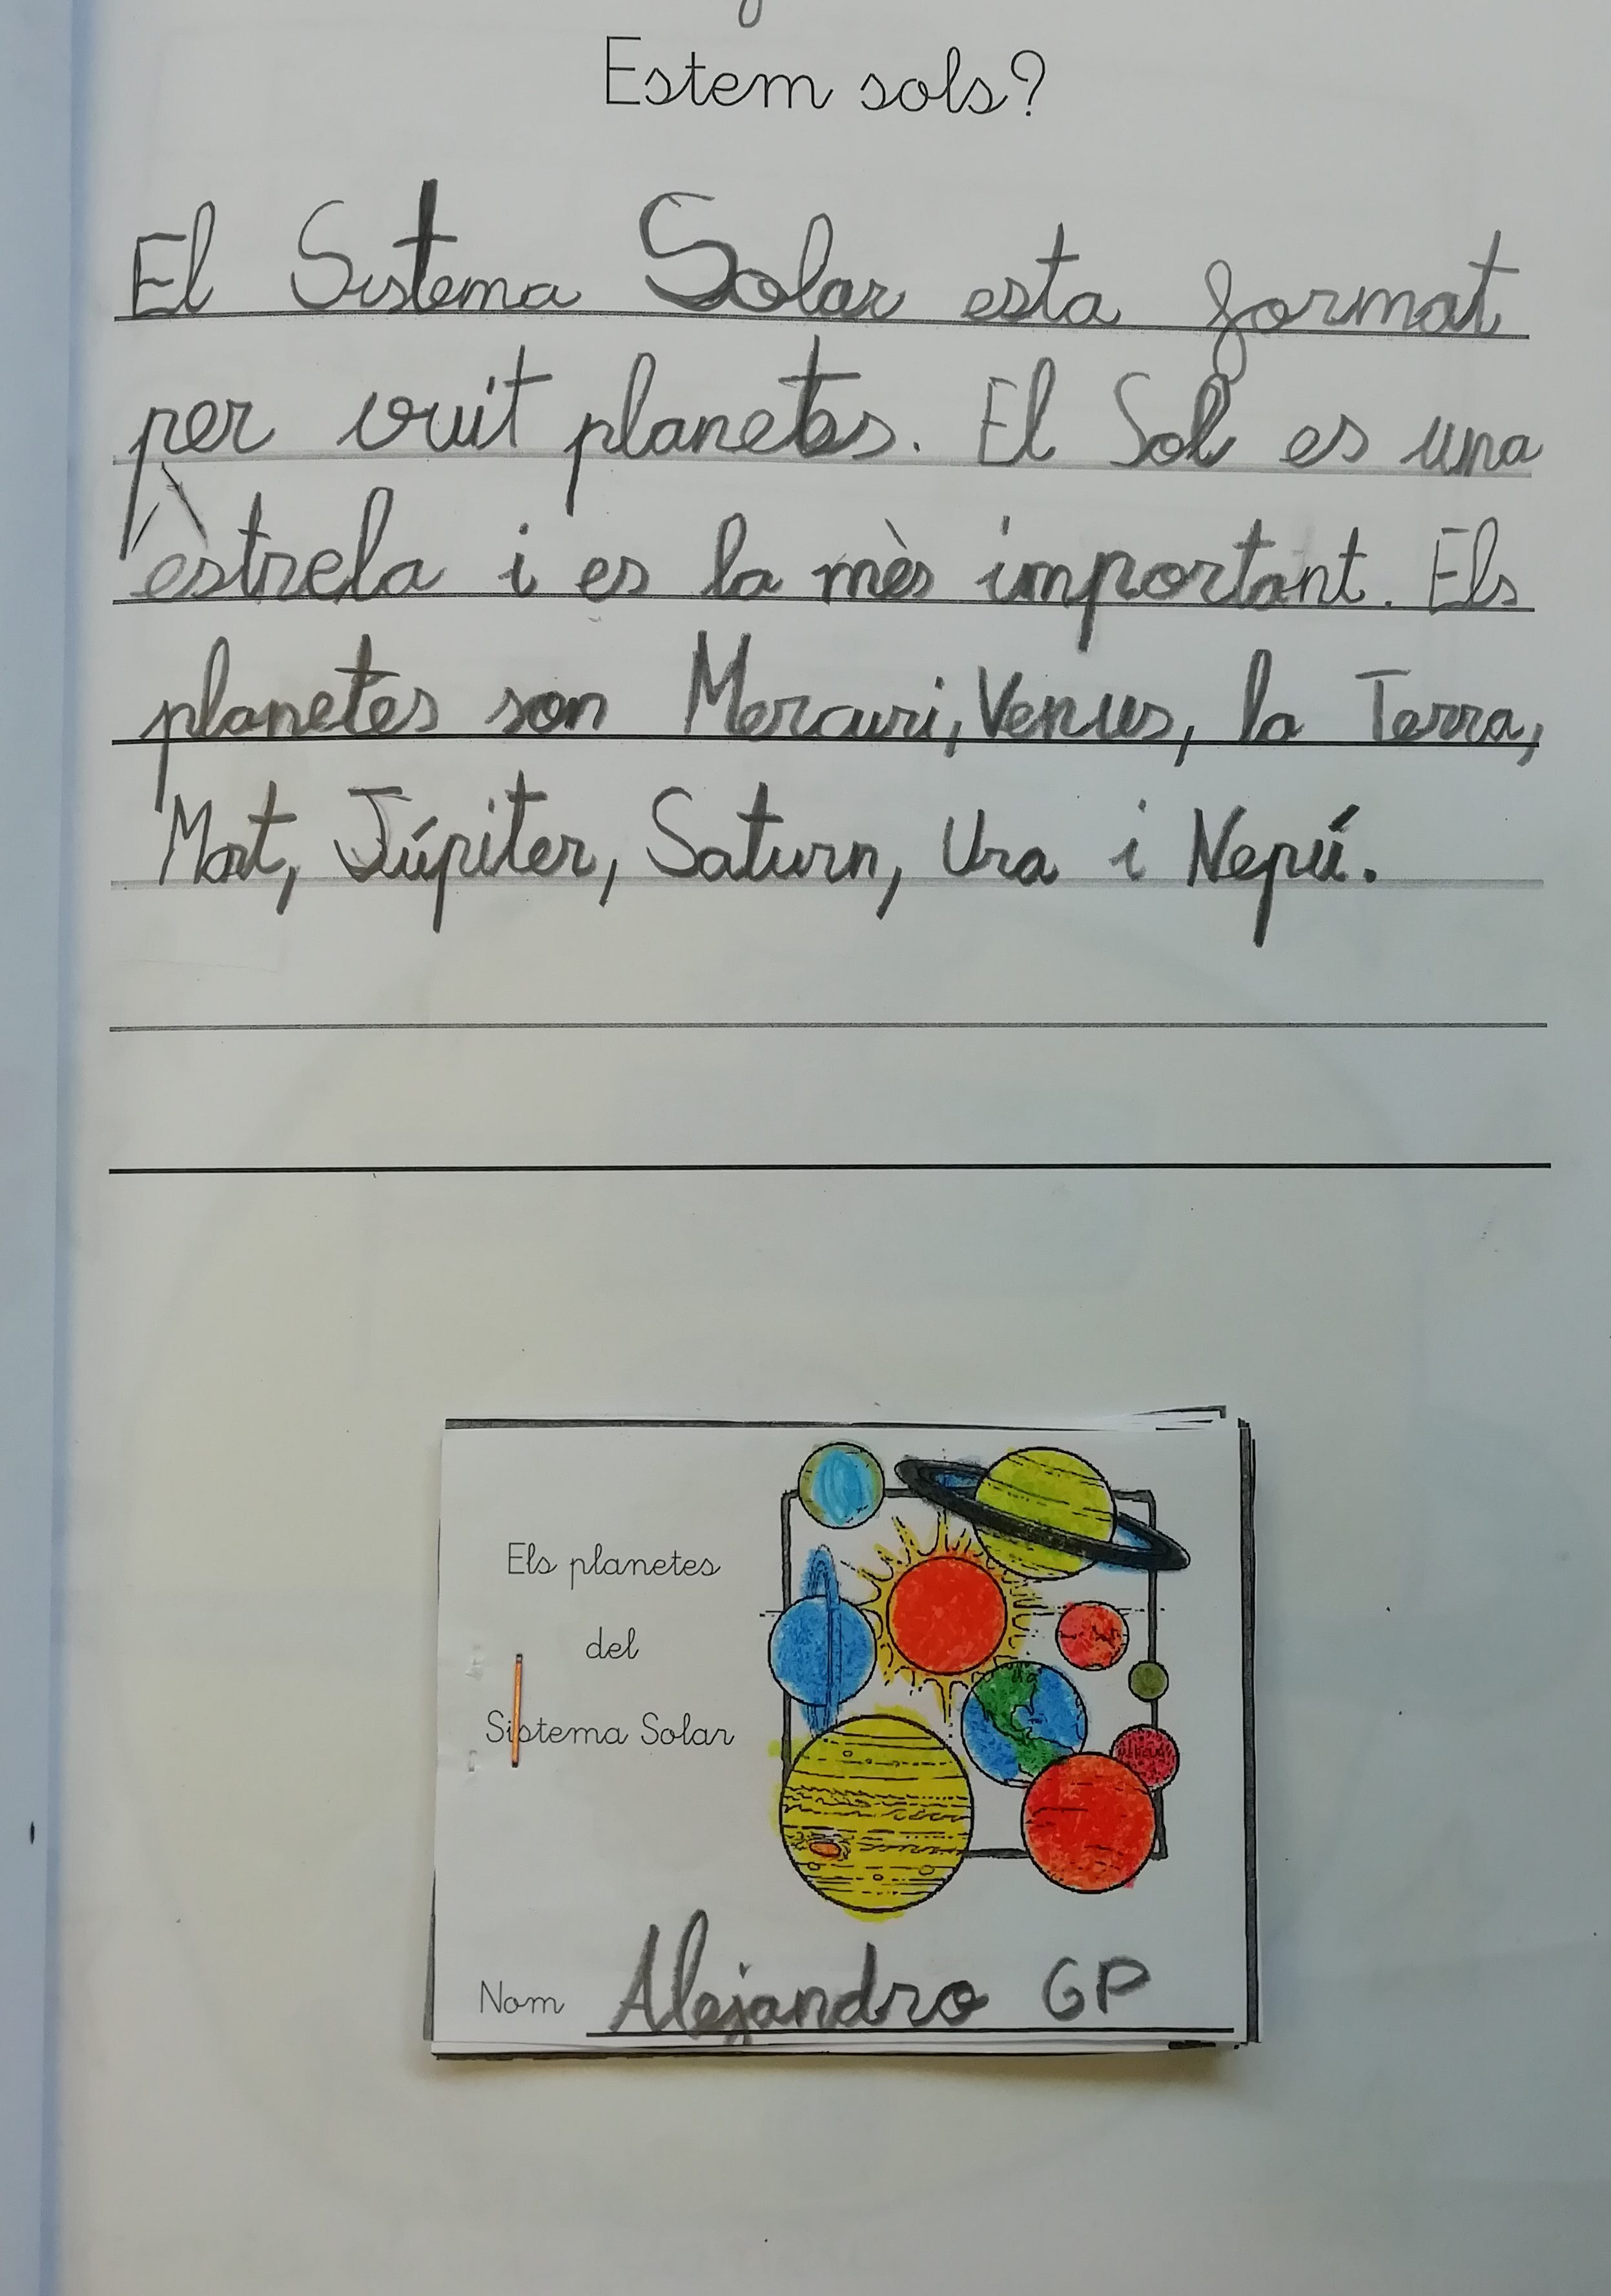 Estem sols?
El Sistema Solar esta format
per vuit planetes. El Sol es una
estrela i es la mès important. Els
planetes son Mercuri, Venus, la Terra,
Mart, Júpiter, Saturn, Ura i Nepú.
Els planetes
del
Sistema Solar
Nom Alejandro GP